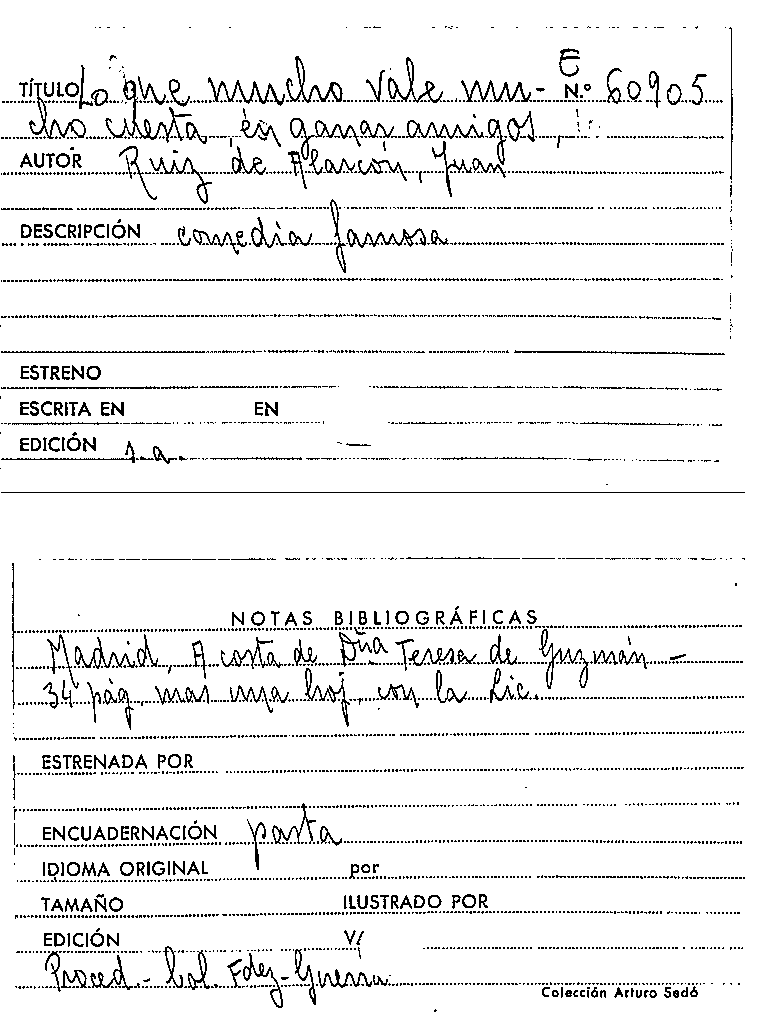 E
TÍTULO Lo que mucho vale mu- N.º 60905
cho cuesta, en ganar amigos,
AUTOR Ruiz de Alarcón, Juan
DESCRIPCIÓN comedia famosa
ESTRENO
ESCRITA EN EN
EDICIÓN s.a. —
NOTAS BIBLIOGRÁFICAS
Madrid, A costa de Dña Teresa de Guzmán –
34 pág. mas una hoj. con la Lic.
ESTRENADA POR
ENCUADERNACIÓN pasta
IDIOMA ORIGINAL por
TAMAÑO ILUSTRADO POR
EDICIÓN V/
Proced.- Col. Fdez-Guerra
Colección Arturo Sedó